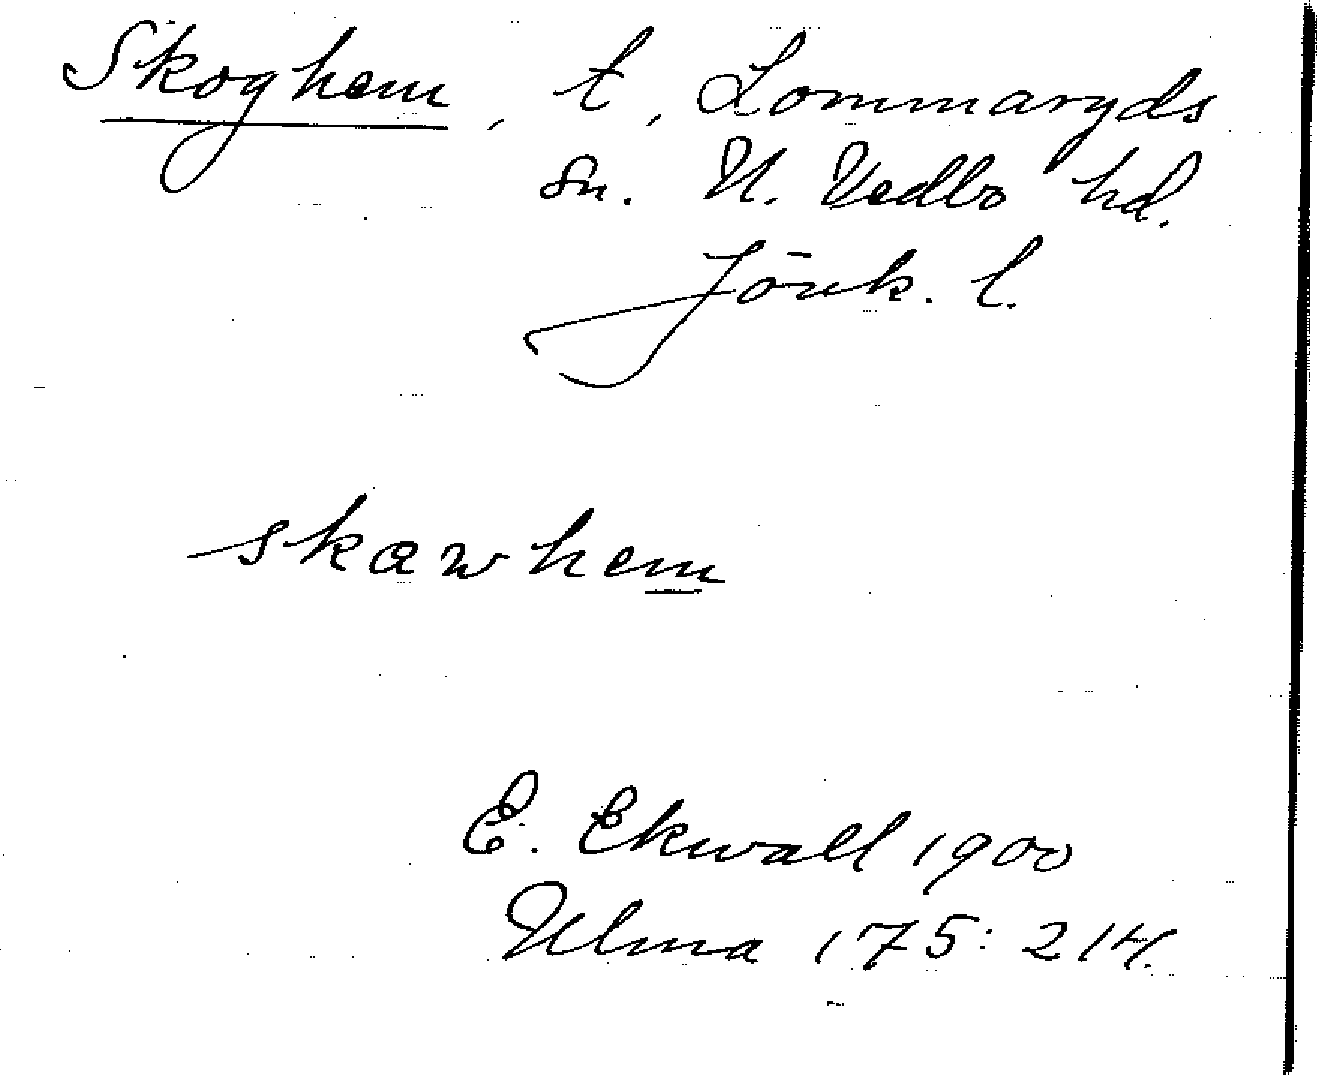 Skoghem, t, Lommaryds
sn. N. Vedbo hd.
Jönk. l.
skawhem
E. Ekwall 1900
Ulma 175: 214.